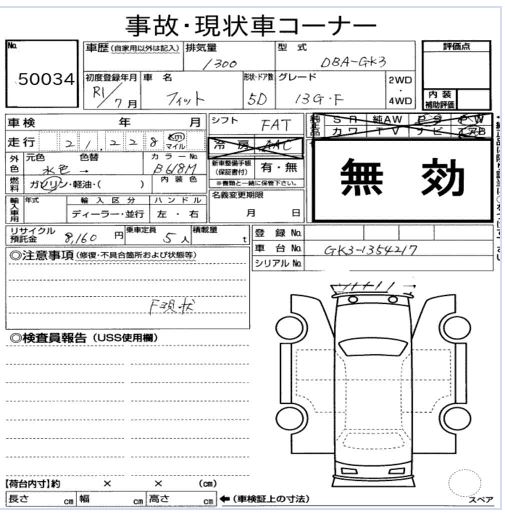 事故・現状車コーナー
No. 50034
車歴(自家用以外は記入) 排気量 1300 型式 DBA-GK3 評価点
初度登録年月 R1/7月 車名 フィット 形状・ドア数 5D グレード 13G・F 2WD・4WD 内装補助評価
車検 年 月 シフト FAT
走行 21,228 km マイル 冷房 AAC
純正品 SR 純AW PS PW
カワ TV ナビ エアB
外色 元色 水色 色替 → カラーNo. B618M 新車整備手帳(保証書付) 有・無
※書類と一緒に保管下さい。
燃料 ガソリン・軽油・( ) 内装色 名義変更期限 月 日
無効
輸入車用 年式 輸入区分 ディーラー・並行 ハンドル 左・右
リサイクル預託金 8,160 円 乗車定員 5人 積載量 t
登録No.
車台No. GK3-1354217
シリアルNo.
◎注意事項(修復・不具合箇所および状態等)
F現状
◎検査員報告(USS使用欄)
【荷台内寸】約 × × (cm)
長さ cm 幅 cm 高さ cm ←(車検証上の寸法)
スペア